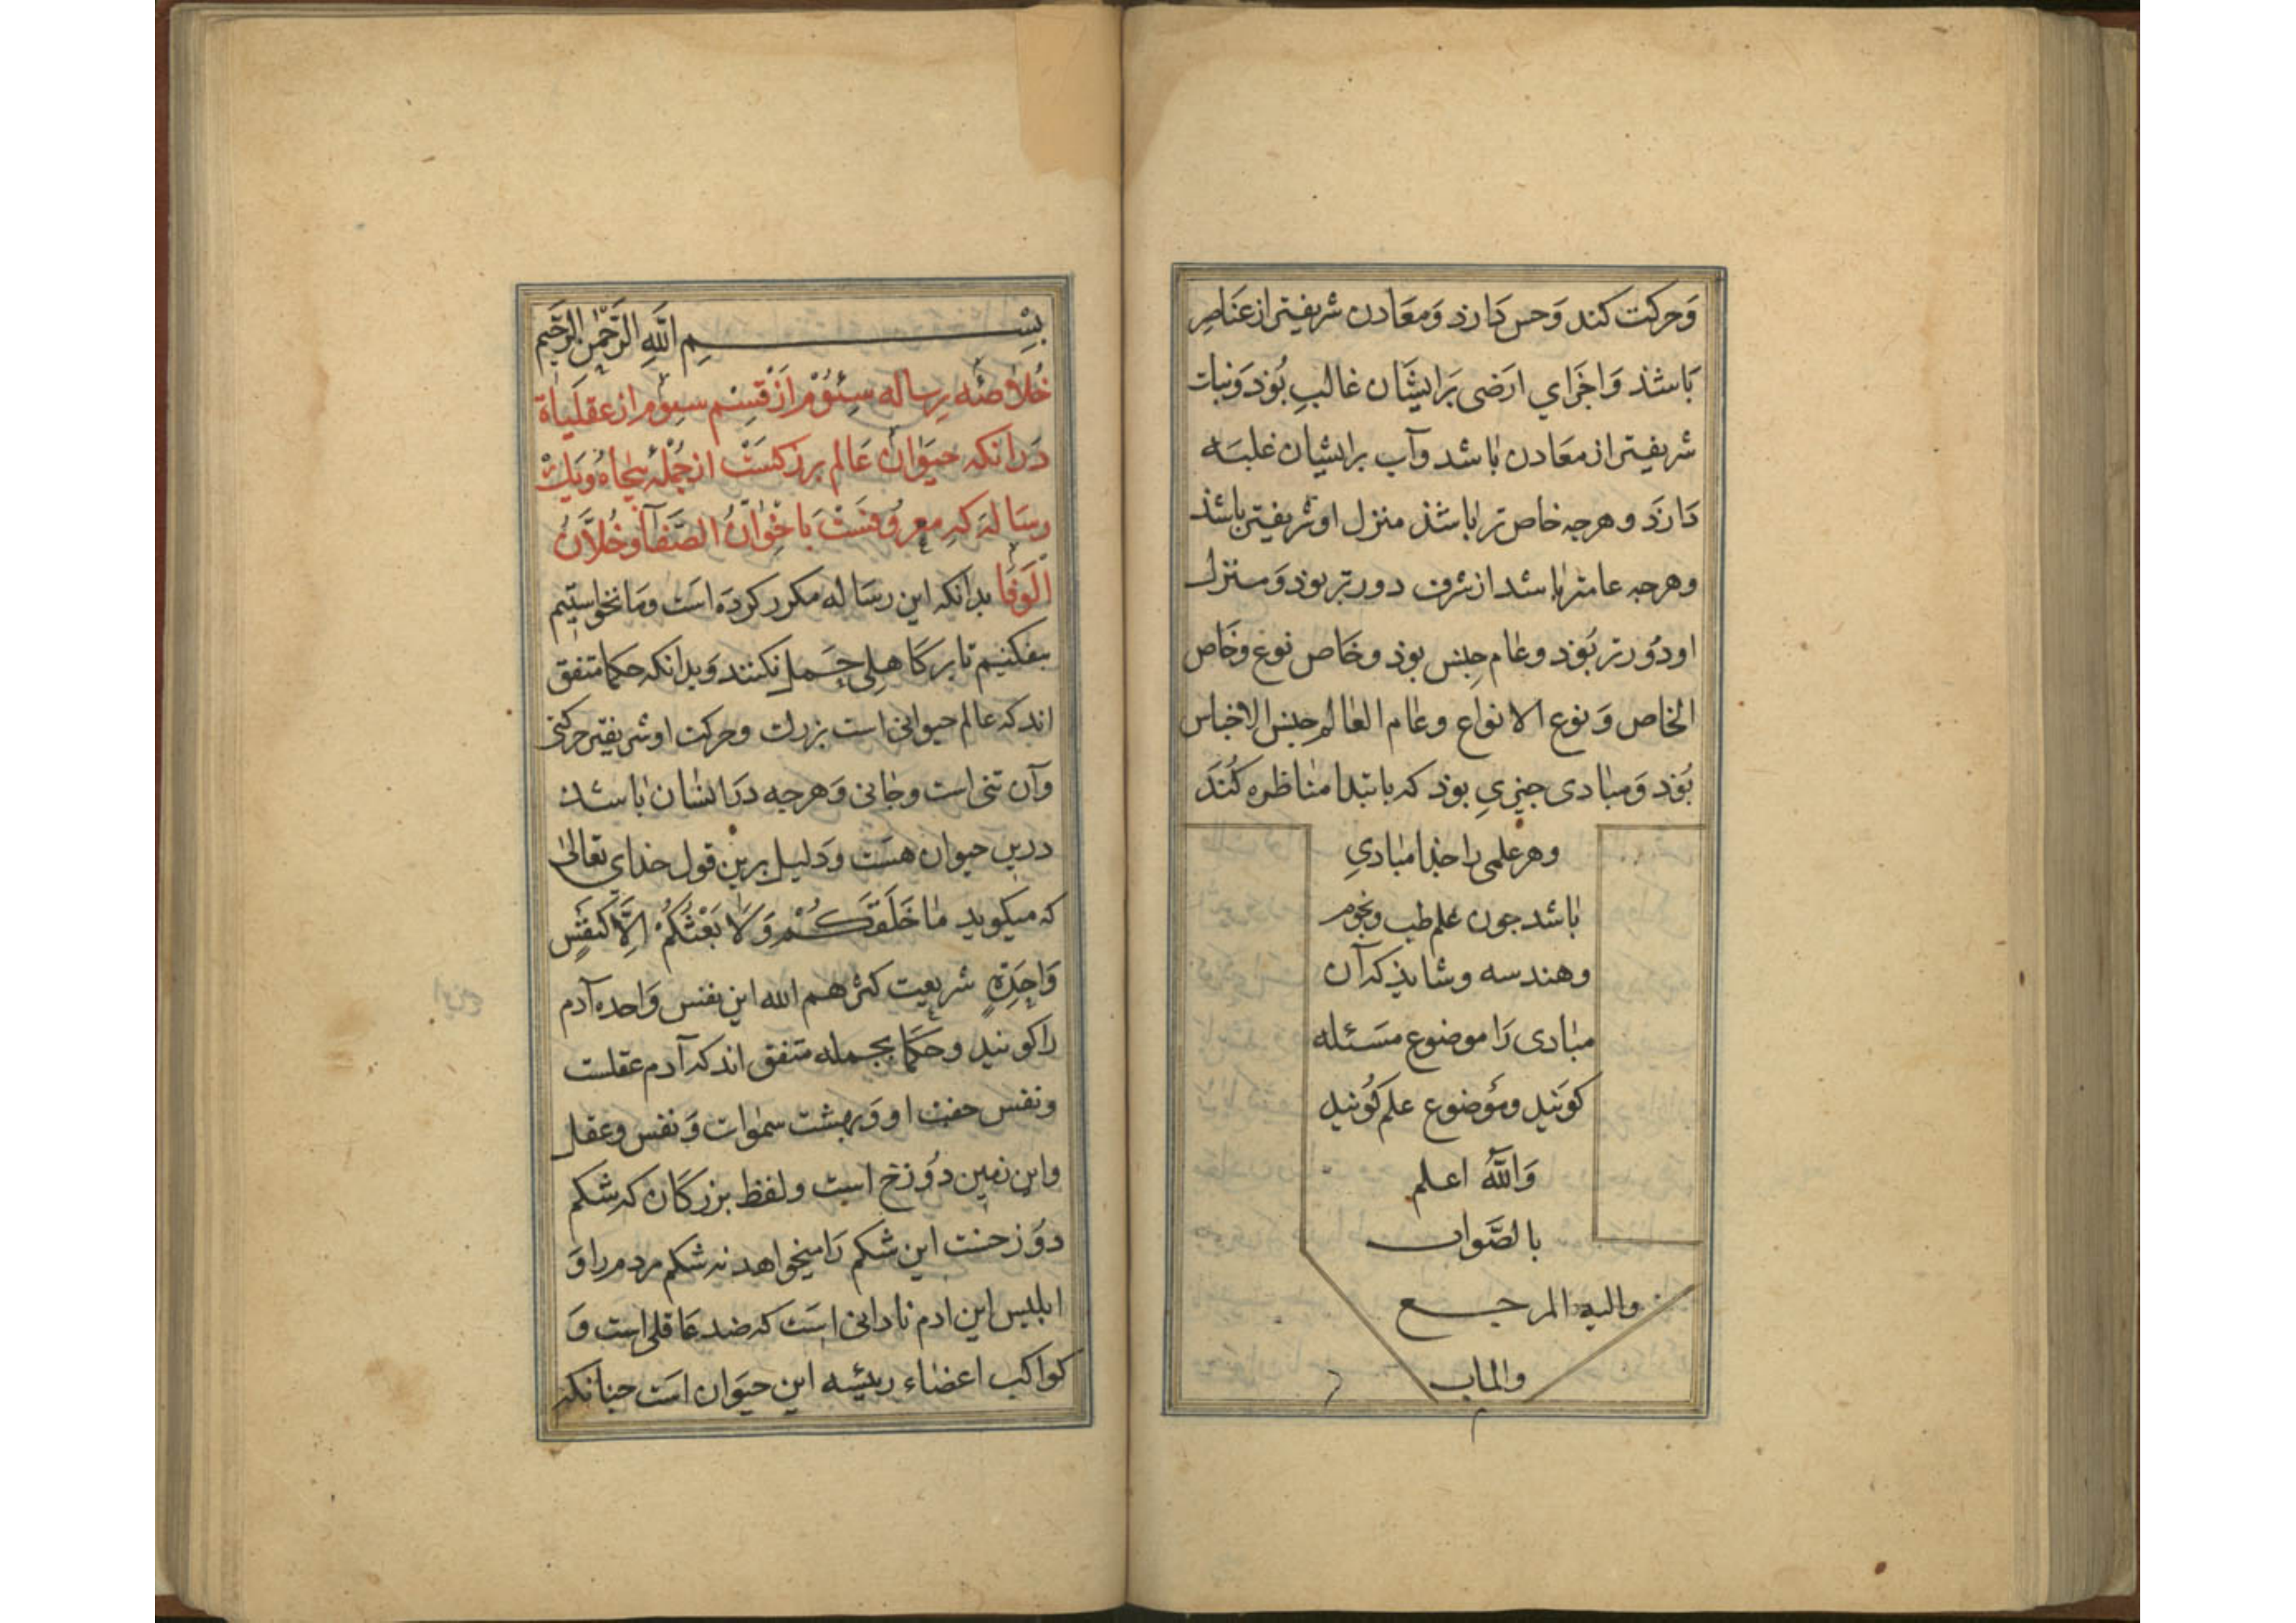 وَحرکت کند وَحس دَارد وَمعَادن شریفتر از عنَاصر
بَاشذ وَاجزَاي ارَضی بَرایشَان غالبِ بُوذ وَنبات
شریفتر از معَادن باشد وآب برایشان غلبَه
دَارَد و هرچه خاص تر باشذ منزل او شریفتر باشذ
وهرچه عامتر باشد از شرف دورتر بوذ وَمنزل
او دُورتر بَوَد وعام جِنس بوذ وخَاص نوع وخَاص
الخاص وَ نوع الانواع وعام العَالم جنس الاجناس
بُوَد وَمبادی چیزیِ بوذ که بابتدا مناظره کُنَدَ
وهر علمی را جذا مبادیِ
باشد جون علم طب ونجوم
وهندسه وشایذ که آن
مبادی رَا موضوع مسَئله
کوَنید ومَوضوع علم کُونید
وَاللّٰهُ اعلم
بالصَّواب
والیه المرجع
والماب
بِسْمِ اللّٰهِ الرَّحْمٰنِ الرَّحِیمِ
خُلاصَهٔ رِسٰاله سِئوُمْ اَزْ قِسْم سِوم از عقلَیاة
دَرانکه حیَوَان عَالم بزرکسَتْ از جُملهٔ پنجَاهُ وَیَكْ
رسَالهَ کهِ معروُفسَتْ بَاخِوانُ الصَّفآ وَخُلاَّنُ
اَلَوَفَا بدانکه این رسَاله مکرر کردَه است وَما نخواستیم
بیفکنیم تا بر کَاهلی حَمل نکنند وَبدانکه حکما متفق
اند که عالم حیوانی است بزرك وحرکت او شریفتر حرکتی
وآن تنی است وجانی وَهرچه درَ ایشان باشد
درین حیوان هسَت ودَلیل برین قول خدای تعالیٰ
که میکوید مٰا خَلَقَکُمْ وَلَا بَعْثُکُمْ اِلَّا کَنَفْسٍ
وَاحِدَةٍ شریعت کثرهم الله این نفس وَاحده آدم
را کونید و حکمَا بجمله متفق اند که آدم عقلست
ونفس جفت او وَبهشت سمٰوات وَ نفس وعقل
واین زمین دوُزخ است ولفظ بزرکَان که شکم
دوَزحنت این شکم رَا میخواهد نه شکم مردمرا وَ
ابلیس این ادم نادانی است که ضد عَاقلی است وَ
کواکب اعضاء رئیسه این حیَوان است جنانکه